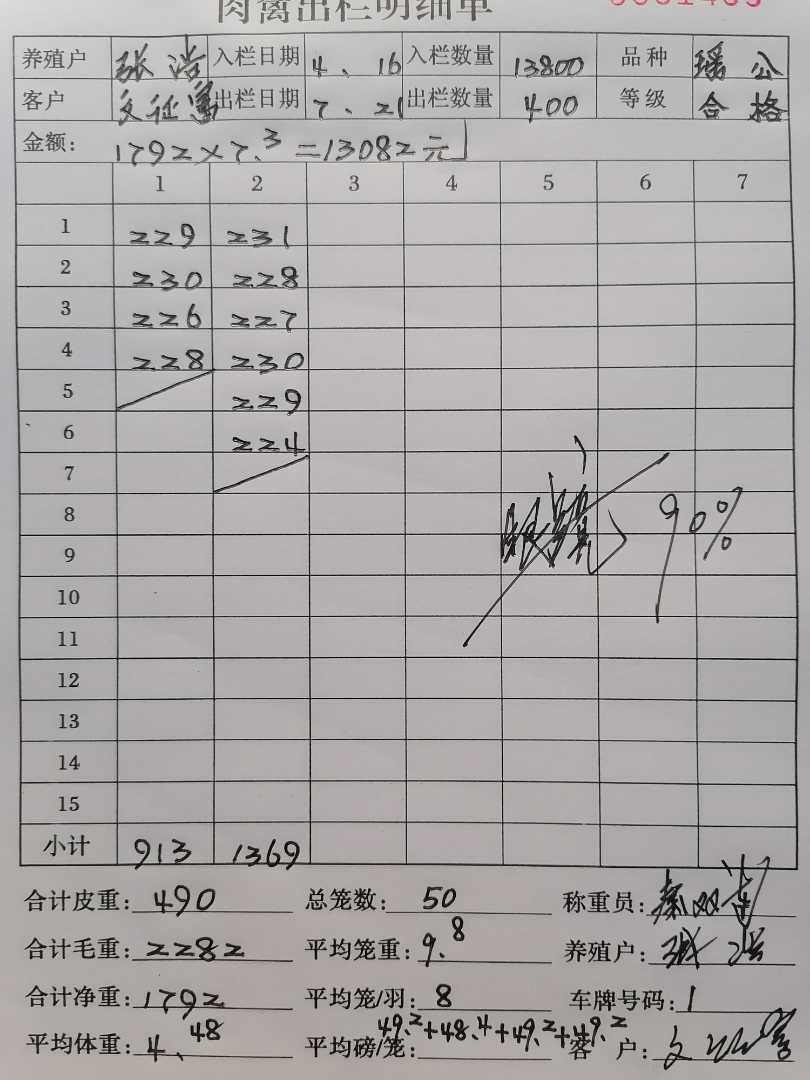 肉禽出栏明细单
养殖户 张浩 入栏日期 4、16 入栏数量 13800 品种 瑶公
客户 文征富 出栏日期 7、21 出栏数量 400 等级 合格
金额: 1792×7.3=13082元
1 2 3 4 5 6 7
1 229 231
2 230 228
3 226 227
4 228 230
5 229
6 224
7
8
90%
9
10
11
12
13
14
15
小计 913 1369
合计皮重: 490 总笼数: 50 称重员:
合计毛重: 2282 平均笼重: 9.8 养殖户:
合计净重: 1792 平均笼/羽: 8 车牌号码: 1
平均体重: 4、48 平均磅/笼: 49.2+48.4+49.2+49.2 客户: